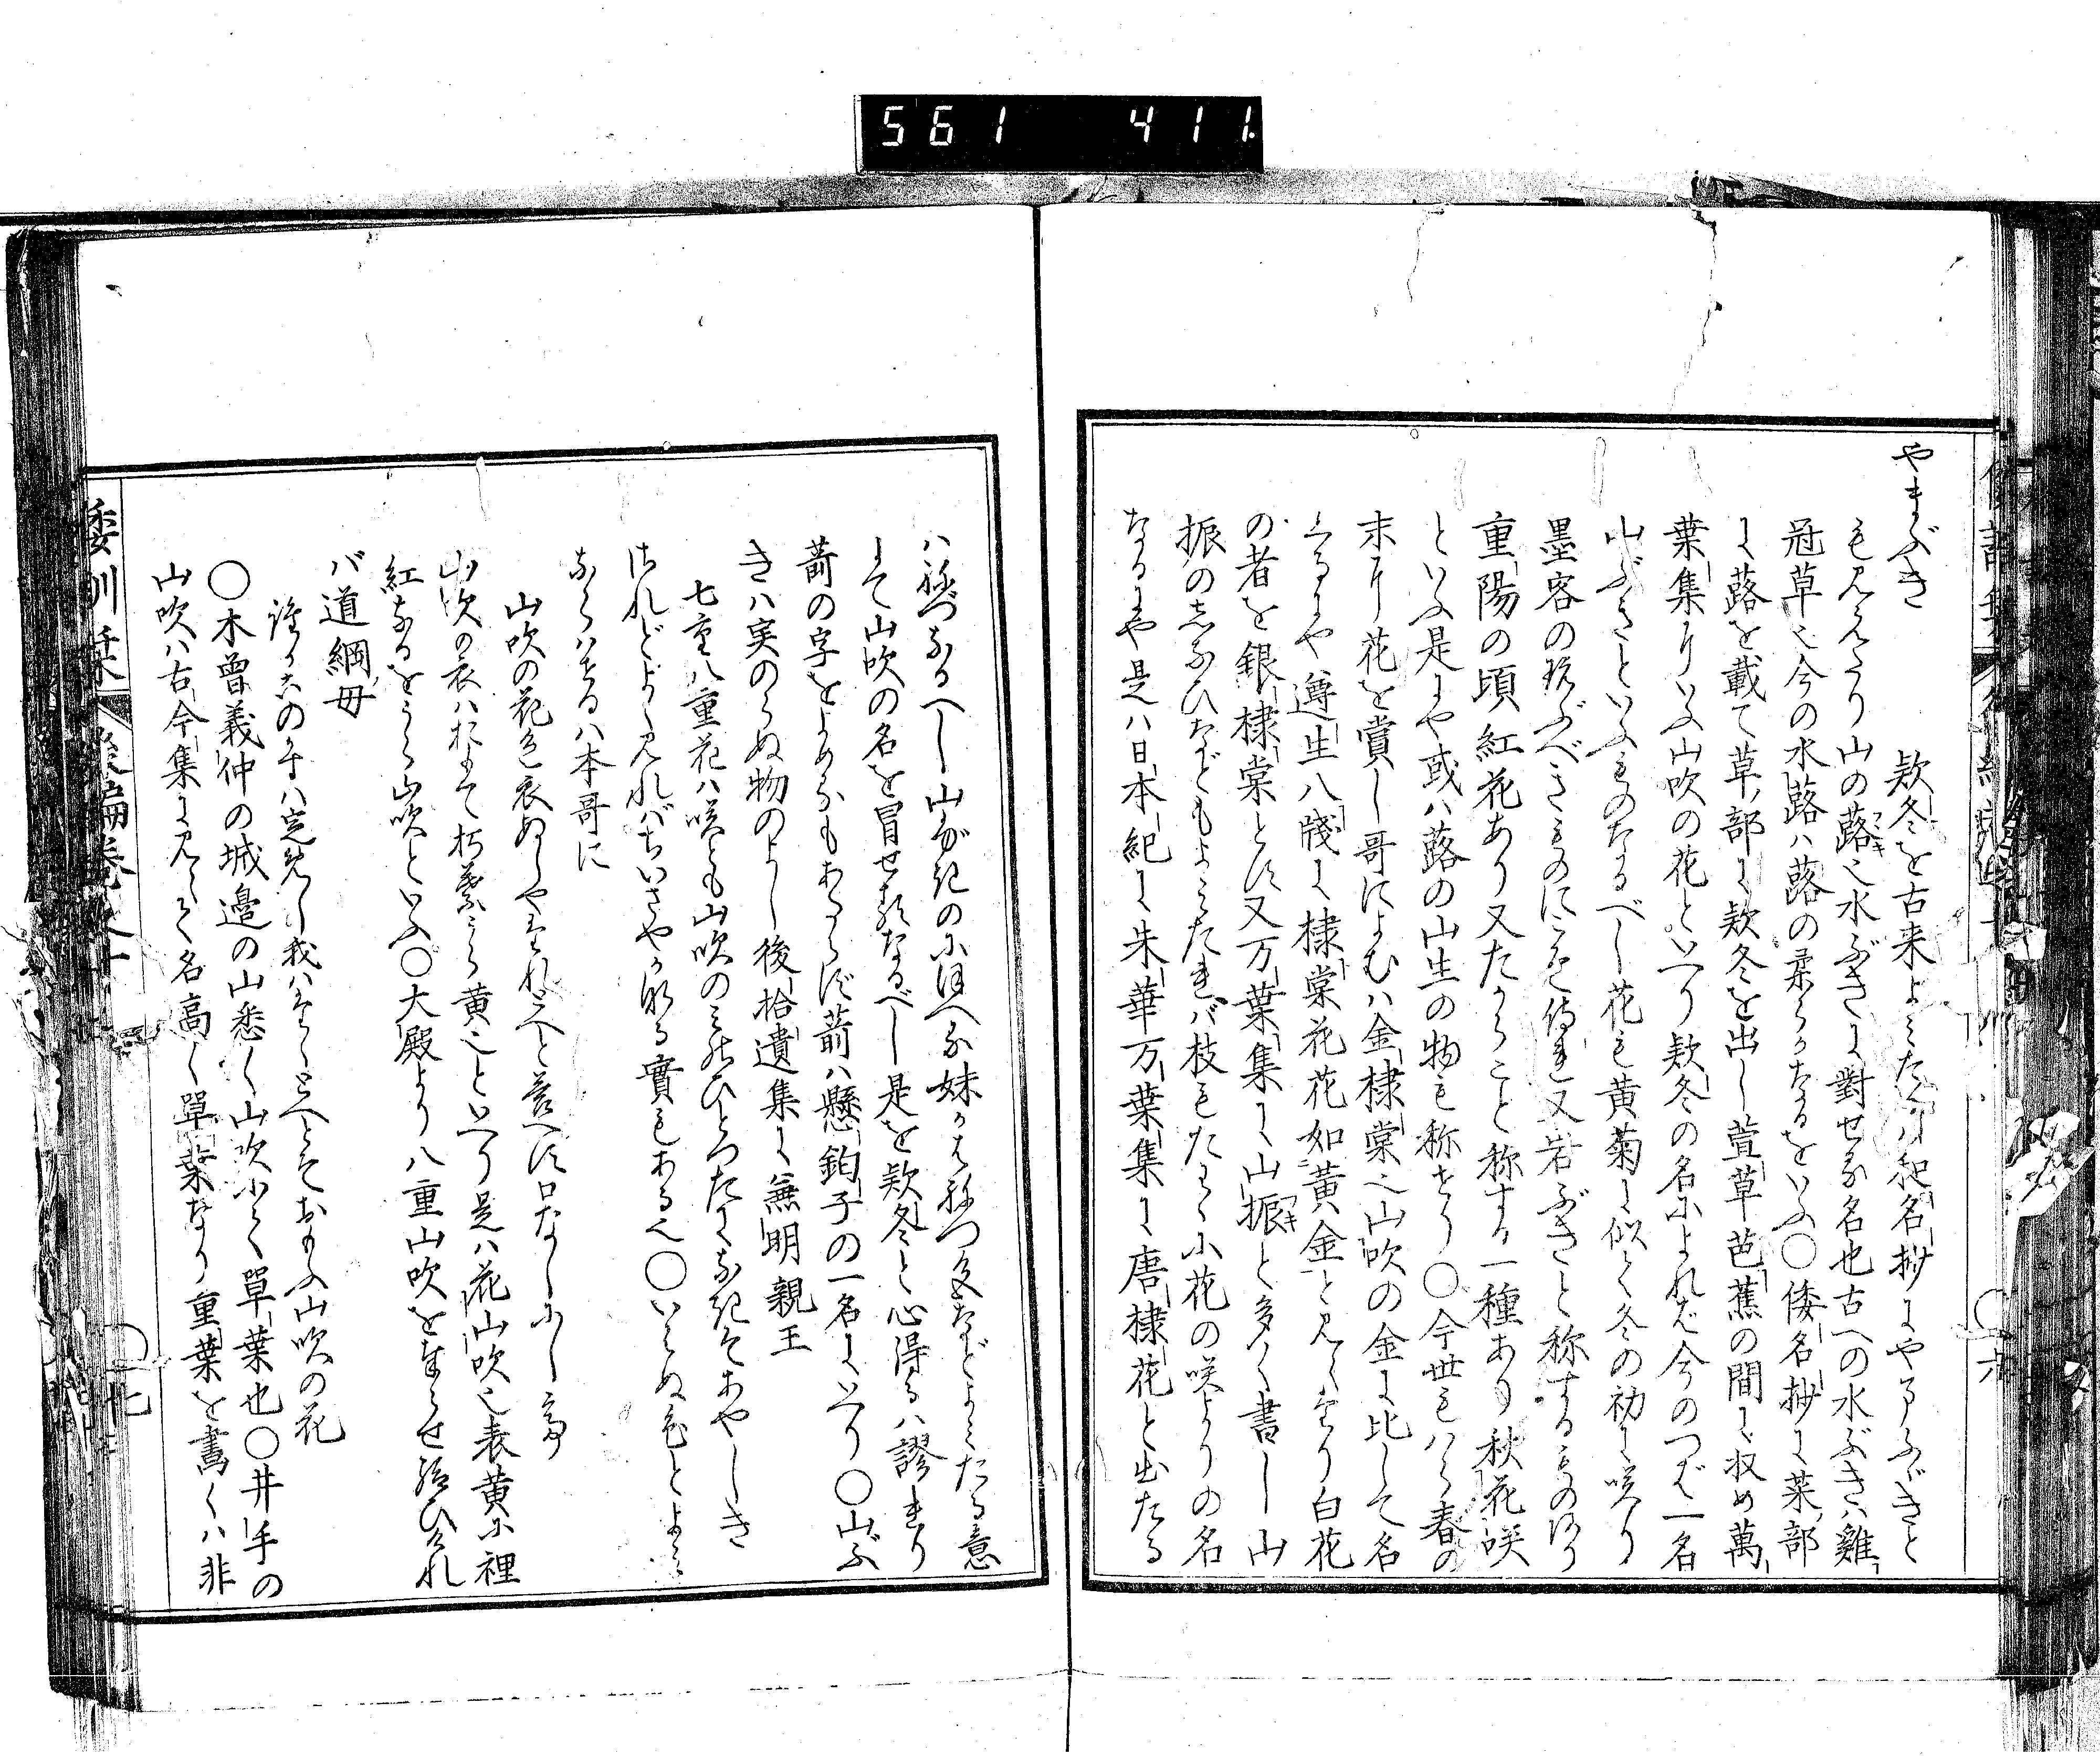 561 411
やまぶき
欵冬を古来よみたれバ和名抄にやまふぶきと
も見えたり山の蕗也水ぶきに對せる名也古への水ぶきハ雞
冠草也今の水蕗ハ蕗の柔らかなるをいふ〇倭名抄に菜部
に蕗を載て草部に欵冬を出し萱草芭蕉の間に収め萬
葉集にいふ山吹の花といへり欵冬の名によれば今のつば一名
山ぶきといふものなるべし花も黄菊に似て冬の初に咲り
墨客の玩ぶべきものにこそ侍れ又岩ぶきと称するものあり
重陽の頃紅花あり又たからこと称する一種あり秋花咲
といふ是にや或ハ蕗の山生の物も称せり〇今世もハら春の
末に花を賞し哥によむハ金棣棠也山吹の金に比して名
くるにや遵生八牋に棣棠花花如黄金と見えたり白花
の者を銀棣棠とす又万葉集に山振と多く書し山
振のしなひなどもよみたれバ枝もたわゝ小花の咲よりの名
なるにや是ハ日本紀に朱華万葉集に唐棣花と出たる
ハねづなるべし山ぶきのにほへる妹かはねつなどよみたる意
にて山吹の名を冒せるなるべし是を欵冬と心得るハ謬れり
蕳の字をよめるもあたらず蕳ハ懸鉤子の一名にいへり〇山ぶ
きハ実のらぬ物のよし後拾遺集に無明親王
七重八重花ハ咲とも山吹のみのひとつだになきぞあやしき
されどよく見れバちいさやかなる實もある也〇いはぬ色とよみ
ならハせるハ本哥に
山吹の花色衣ぬしやたれとへと答へず口なしにして
山吹の衣ハおもて朽葉うら黄也といへり是ハ花山吹也表黄に裡
紅なるをうら山吹といふ〇大殿より八重山吹を奉らせ給ひけれ
バ道綱母
誰かこの数ハ定めし我ハたゝとへとぞおもふ山吹の花
〇木曽義仲の城邉の山悉く山吹にて單葉也〇井手の
山吹ハ古今集に見えて名高く單葉なり重葉を畵くハ非
倭訓栞 後編巻之十
〇十七